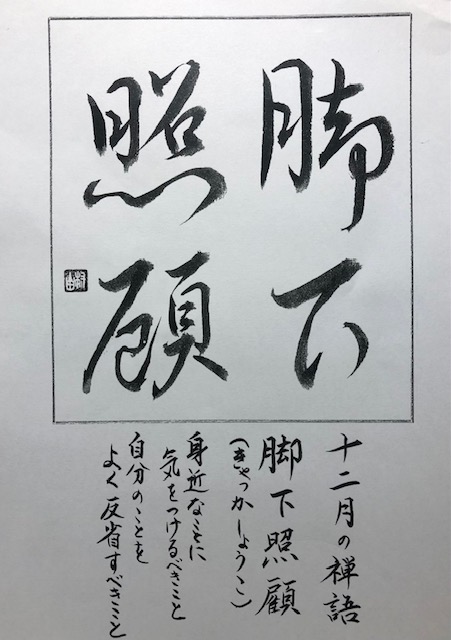 脚下
照顧
十二月の禅語
脚下照顧
(きゃっかしょうこ)
身近なことに
気をつけるべきこと
自分のことを
よく反省すべきこと